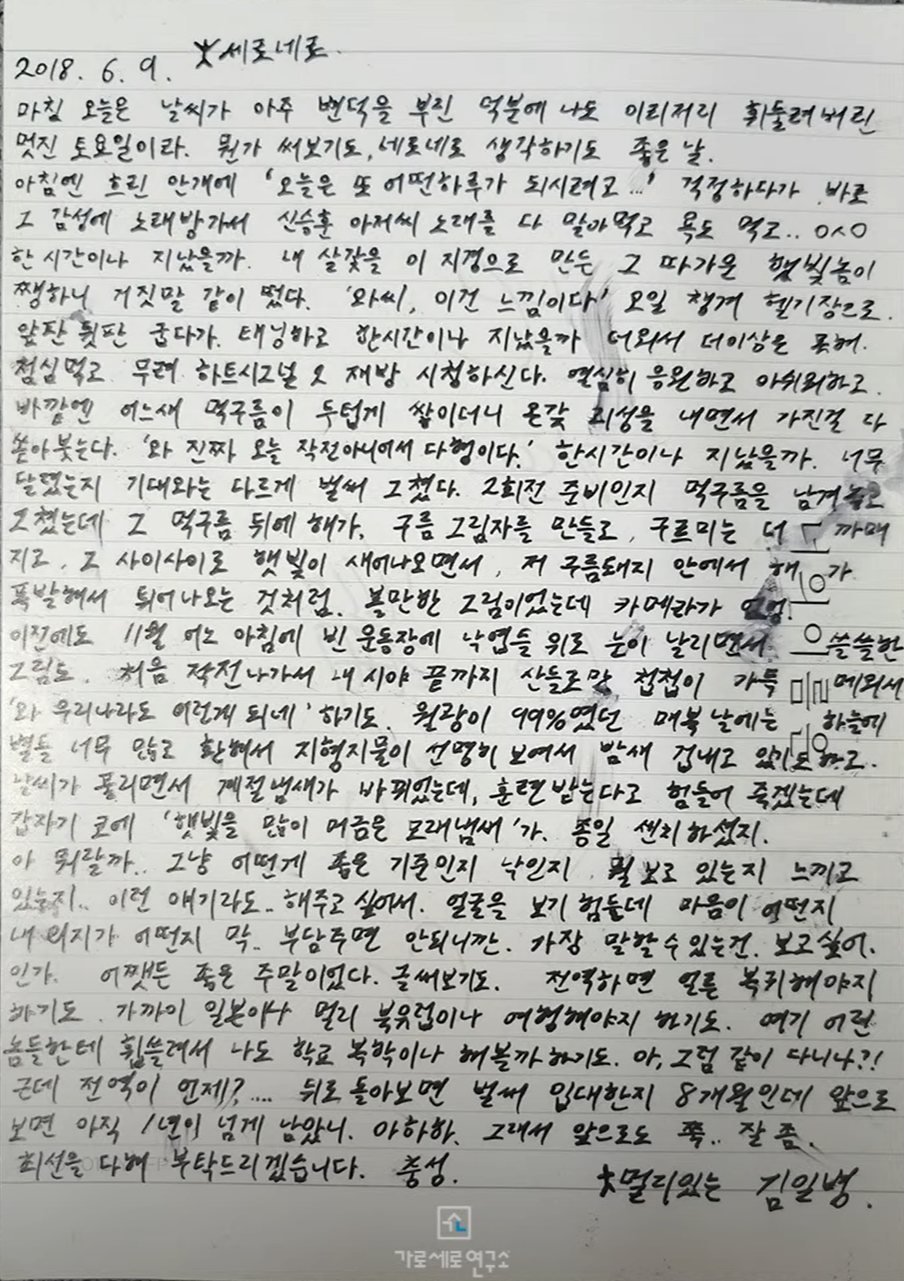 ★세로네로.
2018. 6. 9.
마침 오늘은 날씨가 아주 변덕을 부린 덕분에 나도 이리저리 휘둘려버린
멋진 토요일이라. 뭔가 써보기도, 네로네로 생각하기도 좋은 날.
아침엔 흐린 안개에 '오늘은 또 어떤하루가 되시려고...' 걱정하다가 바로
그 감성에 노래방가서 신승훈 아저씨 노래를 다 말아먹고 욕도 먹고.. ㅇㅅㅇ
한시간이나 지났을까. 내 살갗을 이 지경으로 만든 그 따가운 햇빛놈이
쨍하니 거짓말 같이 떴다. '와씨, 이건 느낌이다' 오일 챙겨 헬기장으로.
앞판 뒷판 굽다가. 태닝하고 한시간이나 지났을까 더워서 더이상은 못해.
점심먹고 무려 하트시그널 2 재방 시청하신다. 열심히 응원하고 아쉬워하고.
바깥엔 어느새 먹구름이 두텁게 쌓이더니 온갖 괴성을 내면서 가진걸 다
쏟아붓는다. '와 진짜 오늘 작전아니어서 다행이다.' 한시간이나 지났을까. 너무
달렸는지 기대와는 다르게 벌써 그쳤다. 2회전 준비인지 먹구름을 남겨놓고
그쳤는데 그 먹구름 뒤에 해가, 구름 그림자를 만들고, 구르미는 더 까매
지고, 그 사이사이로 햇빛이 새어나오면서, 저 구름돼지 안에서 해가
폭발해서 튀어나오는 것처럼. 볼만한 그림이었는데 카메라가
이전에도 11월 어느 아침에 빈 운동장에 낙엽들 위로 눈이 날리면서 쓸쓸한
그림도. 처음 작전나가서 내 시야 끝까지 산들로만 첩첩이 가득 메워서
'와 우리나라도 이렇게 되네' 하기도. 월광이 99%였던 매복날에는 하늘에
별들 너무 많고 환해서 지형지물이 선명히 보여서 밤새 겁내고 있기도하고..
날씨가 풀리면서 계절냄새가 바뀌었는데, 훈련받는다고 힘들어 죽겠는데
갑자기 코에 '햇빛을 많이 머금은 모래냄새'가. 종일 센치하셨지.
아 뭐랄까.. 그냥 어떤게 좋은 기준인지 낙인지 뭘 보고 있는지 느끼고
있는지.. 이런 얘기라도.. 해주고 싶어서. 얼굴을 보기 힘들데 마음이 어떤지
내 의지가 어떤지 막.. 부담주면 안되니깐. 가장 말할수있는건. 보고싶어.
인가. 어쨋든 좋은 주말이었다. 글써보기도. 전역하면 얼른 복귀해야지
하기도. 가까이 일본이나 멀리 북유럽이나 여행해야지 하기도. 여기 어린
놈들한테 휩쓸려서 나도 학교 복학이나 해볼까하기도. 아, 그럼 같이 다니나?!
근데 전역이 언제?.... 뒤로 돌아보면 벌써 입대한지 8개월인데 앞으로
보면 아직 1년이 넘게 남았니. 아하하. 그래서 앞으로도 쭉.. 잘 좀.
최선을 다해 부탁드리겠습니다. 충성.
★멀리있는 김일병.
가로세로연구소